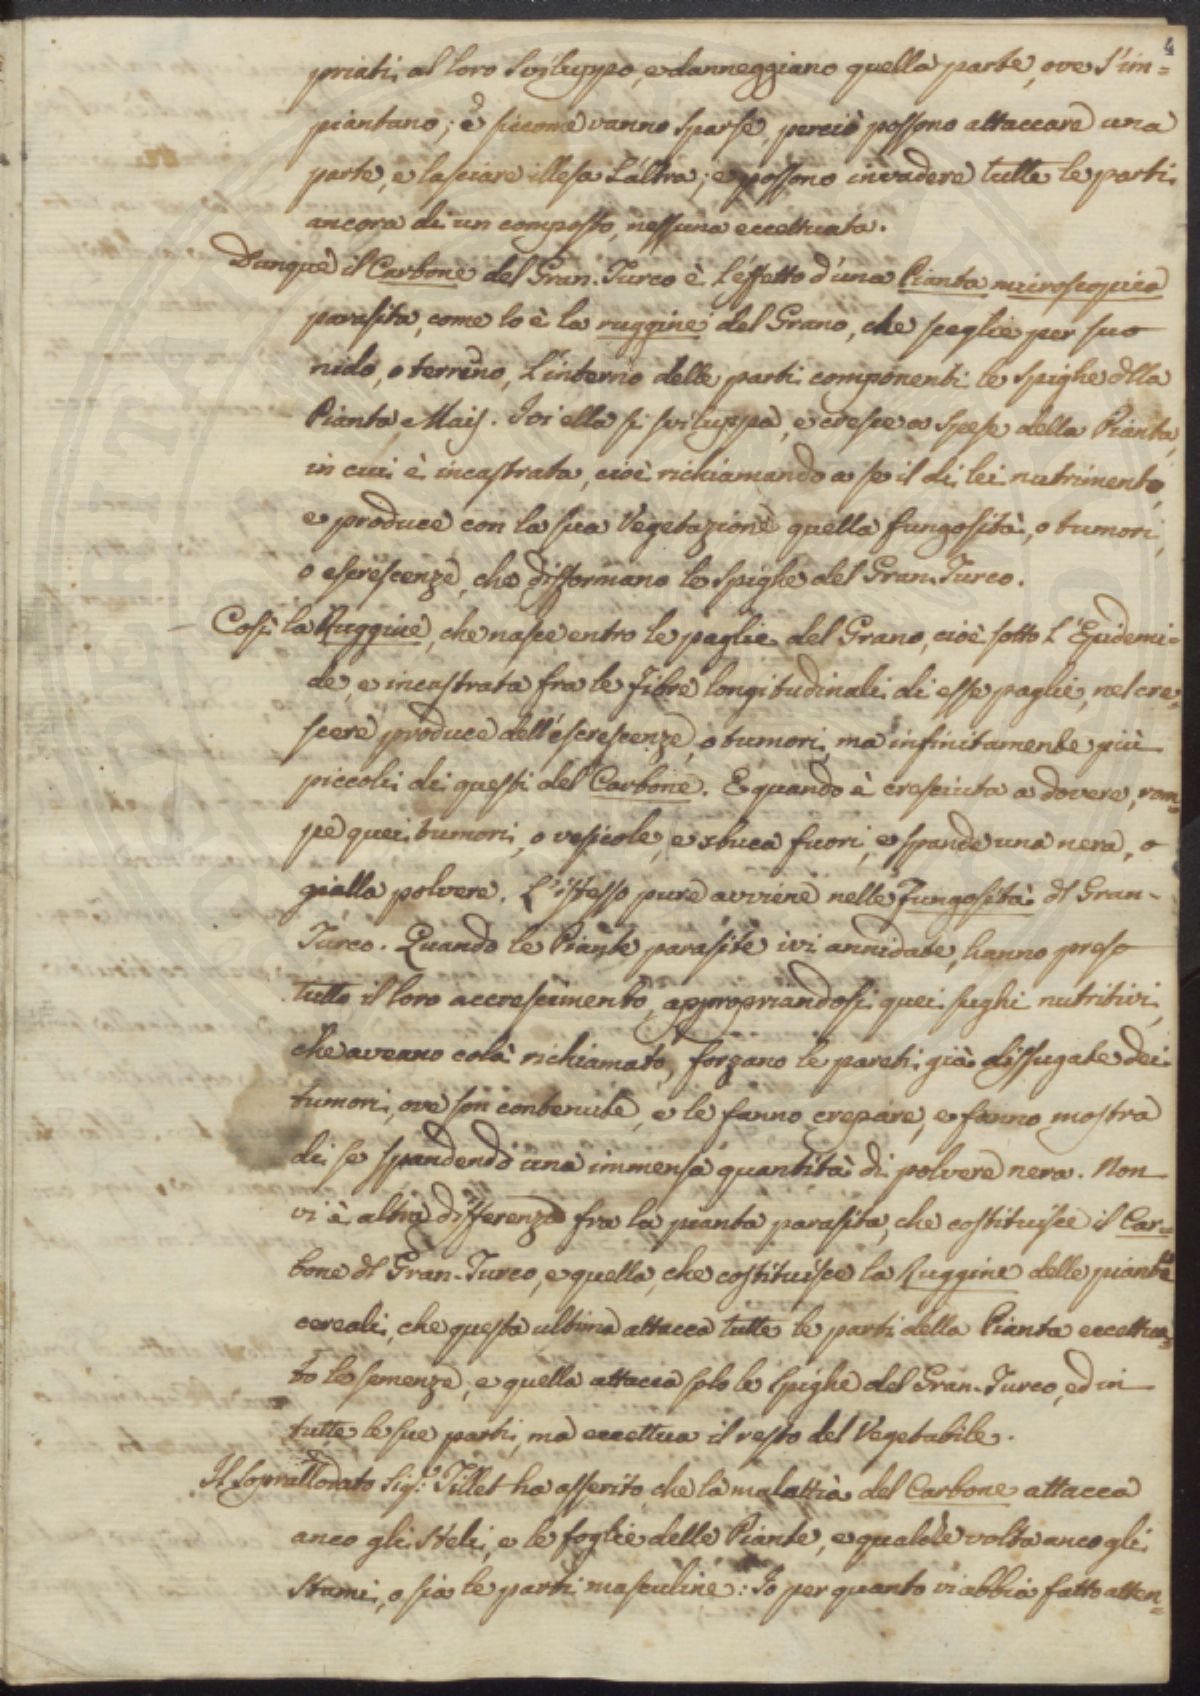 4
priati al loro sviluppo, e danneggiano quella parte, ove s'im=
piantano; e siccome vanno sparse, perciò possono attaccare una
parte, e lasciare illesa l'altra; e possono invadere tutte le parti
ancora di un composto, nessuna eccettuata.
Dunque il Carbone del Gran-Turco è l'effetto d'una Pianta microscopica
parasita, come lo è la ruggine del Grano, che sceglie per suo
nido, o terreno, l'interno delle parti componenti le spighe dlla
Pianta Mais. Ivi ella si sviluppa, e cresce a spese della Pianta,
in cui è incastrata, cioè richiamando a se il di lei nutrimento,
e produce con la sua Vegetazione quella fungosità, o tumori,
o escrescenze, che difformano le spighe del Gran-Turco.
Così la Ruggine, che nasce entro le paglie del Grano, cioè sotto l'Epidemi=
de, e incastrata fra le fibre longitudinali di esse paglie, nel cre=
scere produce dell'escrescenze, o tumori, ma infinitamente più
piccoli di questi del Carbone. E quando è cresciuta a dovere, rom=
pe quei tumori, o vesicole, e sbuca fuori, e spande una nera, o
gialla polvere. L'istesso pure avviene nelle fungosità dl Gran-
Turco. Quando le Piante parasite ivi annidate, hanno preso
tutto il loro accrescimento, appropriandosi quei sughi nutritivi,
che aveano colà richiamato, forzano le pareti già dissugate dei
tumori, ove son contenute, e le fanno crepare, e fanno mostra
di se spandendo una immensa quantità di polvere nera. Non
vi è altra differenza fra la pianta parasita, che costituisce il Car=
bone dl Gran-Turco, e quella, che costituisce la Ruggine delle piante
cereali, che questa ultima attacca tutte le parti della Pianta eccettua=
to le semenze, e quella attacca solo le spighe del Gran-Turco, ed in
tutte le sue parti, ma eccettua il resto del Vegetabile.
Il soprallodato Sig.r Tillet ha asserito, che la malattia del Carbone attacca
anco gli steli, e le foglie delle Piante, e qualche volta anco gli
stami, o sia le parti masculine: Io per quanto vi abbia fatto atten=